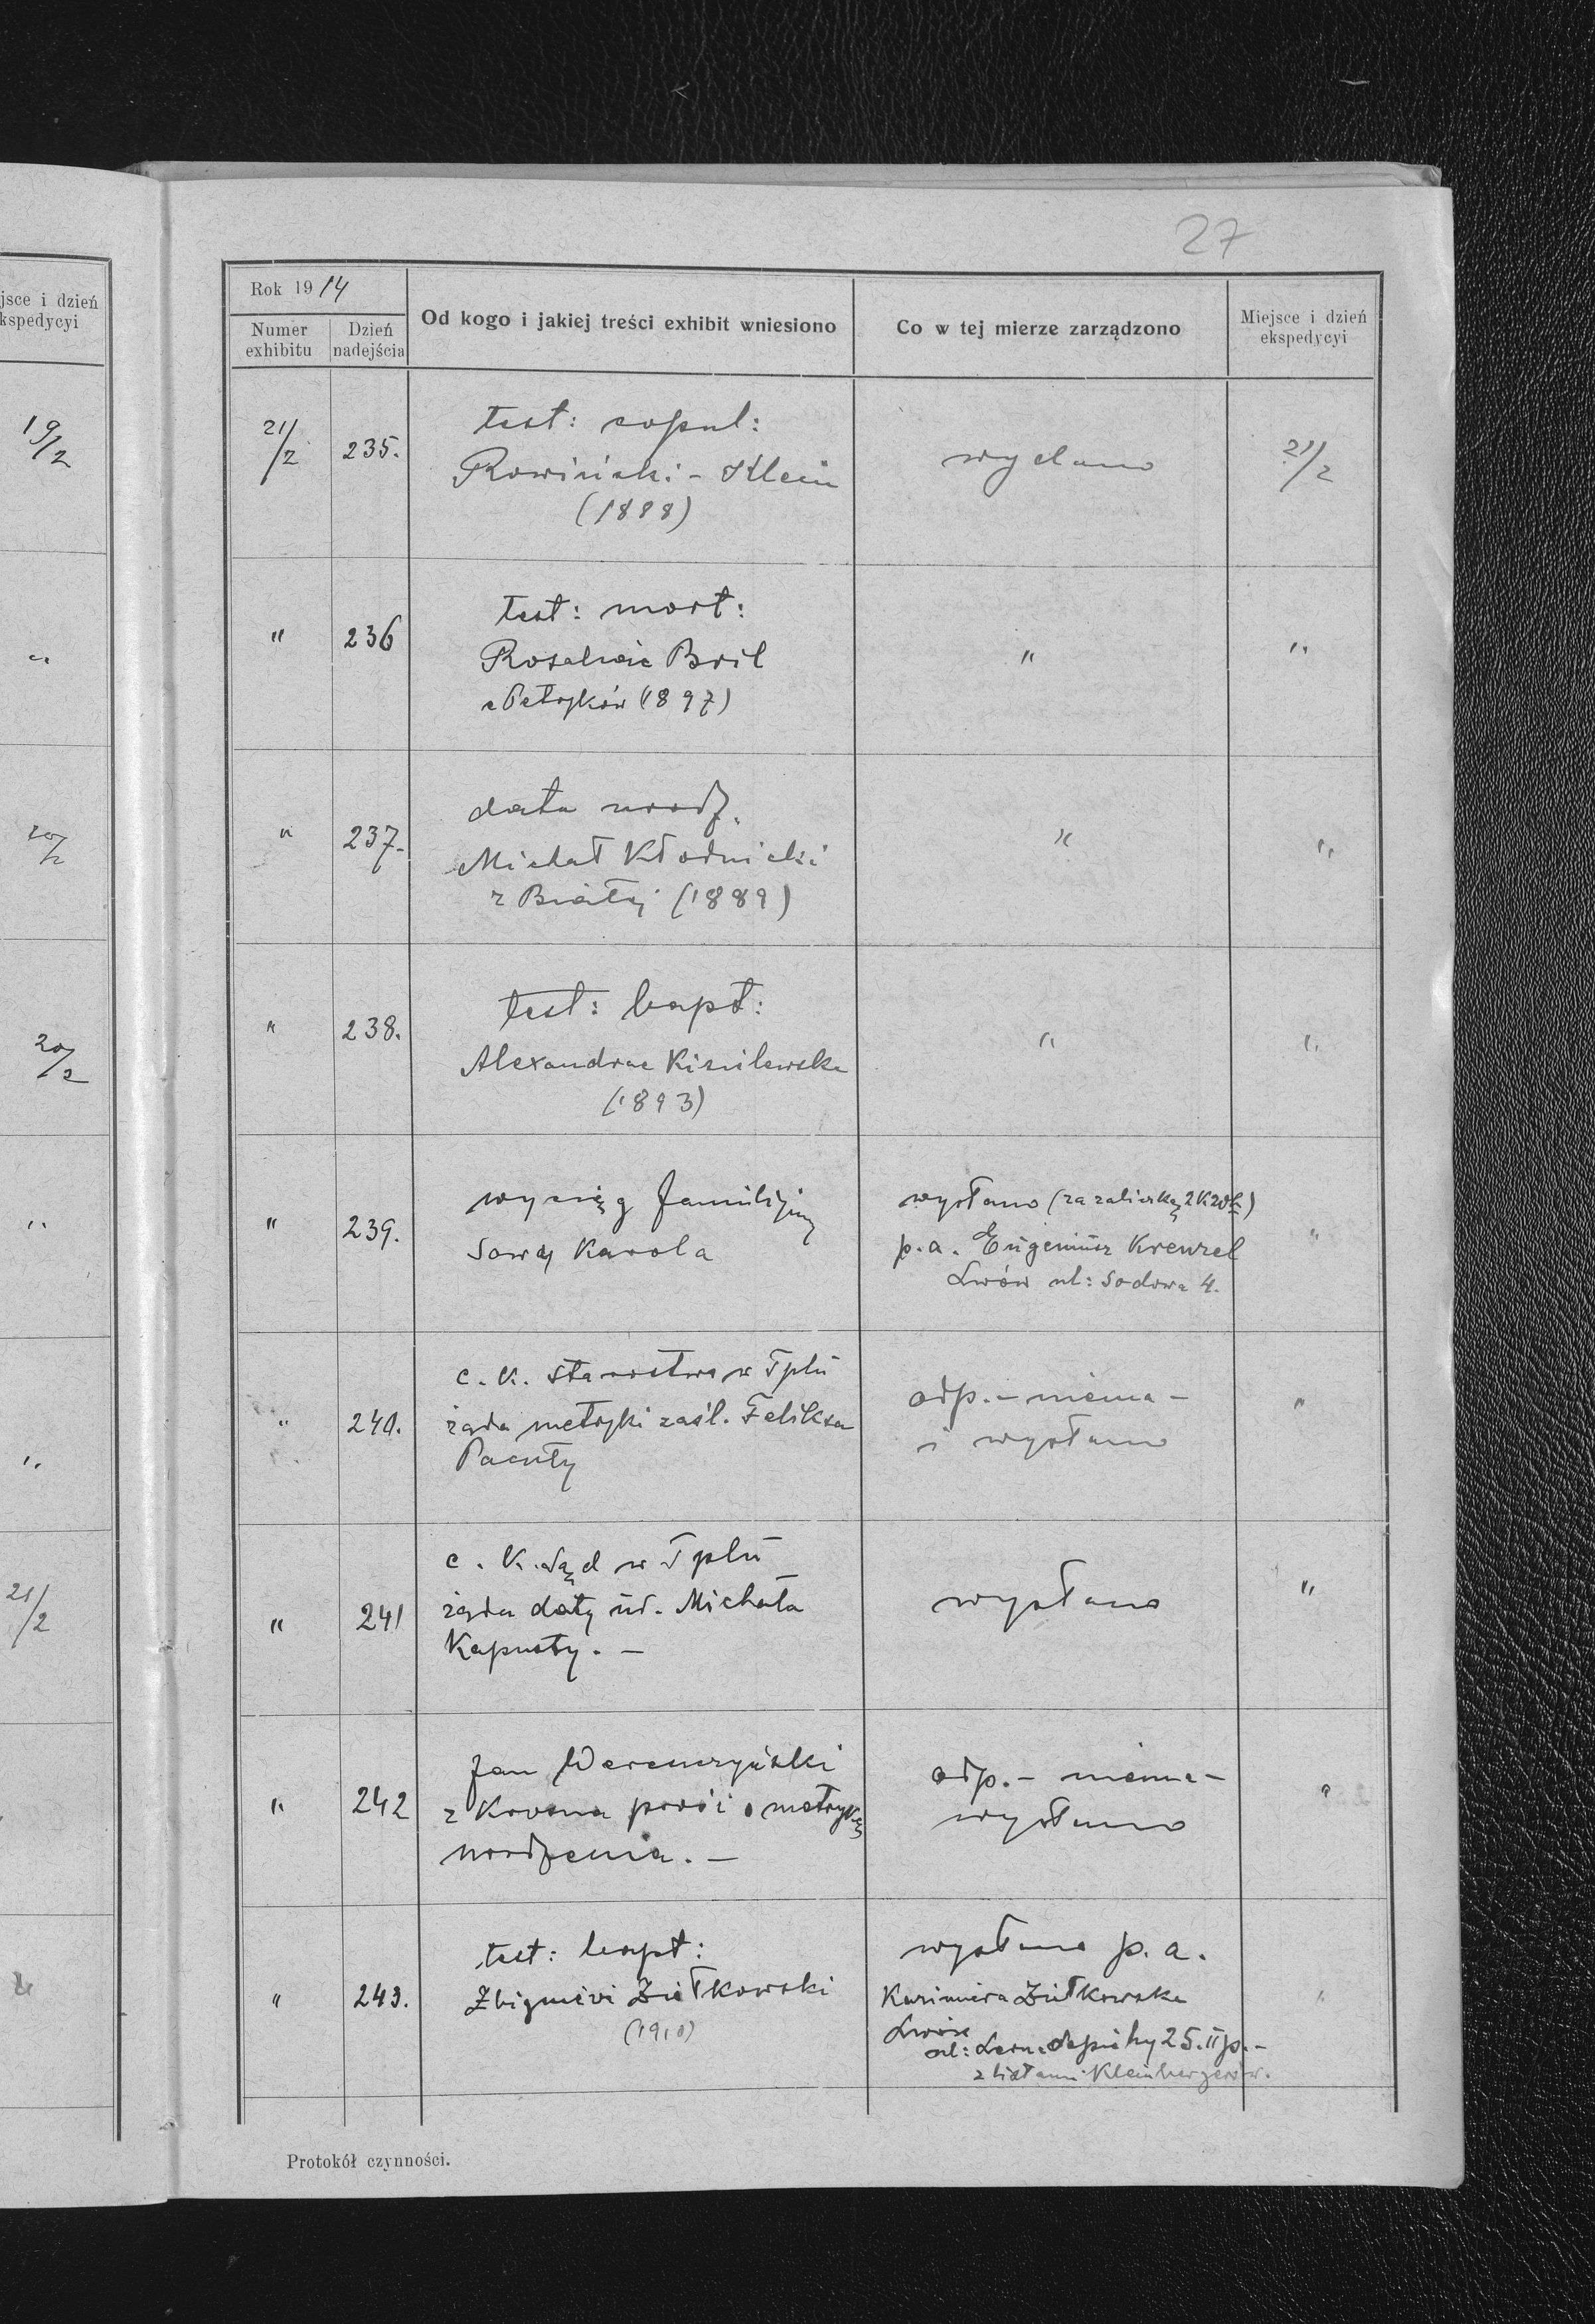 27
jsce i dzień
kspedycyi
19/2
"
20/2
20/2
"
"
21/2
Rok 1914
Numer exhibitu
Dzień nadejścia
Od kogo i jakiej treści exhibit wniesiono
Co w tej mierze zarządzono
Miejsce i dzień ekspedycyi
21/2 235. test: copul:
Rowiński - Klein
(1888)
wydano
21/2
" 236 test: mort:
Rosaliae Bril
e Petryków (1897)
" "
" 237. data urodz.
Michał Kłodnicki
z Białej (1889)
" "
" 238. test: bapt:
Alexandrae Kisielewska
(1893)
" "
" 239. wyciąg familijny
Sowy Karola
wysłano (za zaliczką 2K20h)
p. a. Eugeniusz Krenzel
Lwów ul: Sadowa 4.
"
" 240. c. k. starostwo w Tplu
żąda metryki zaśl. Feliksa
Pacuły
odp. - niema -
i wysłano
"
" 241 c. k. Sąd w Tplu
żąda daty ur. Michała
Kapusty. -
wysłano
"
" 242 Jan Werenczyński
z Krosna prosi o metrykę
urodzenia. -
odp. - niema -
wysłano
"
" 243. test: bapt:
Zbignievi Ziółkowski
(1910)
wysłano p. a.
Kazimiera Ziółkowska
Lwów
ul: Leona Sapiehy 25. II p. -
"
Protokół czynności.